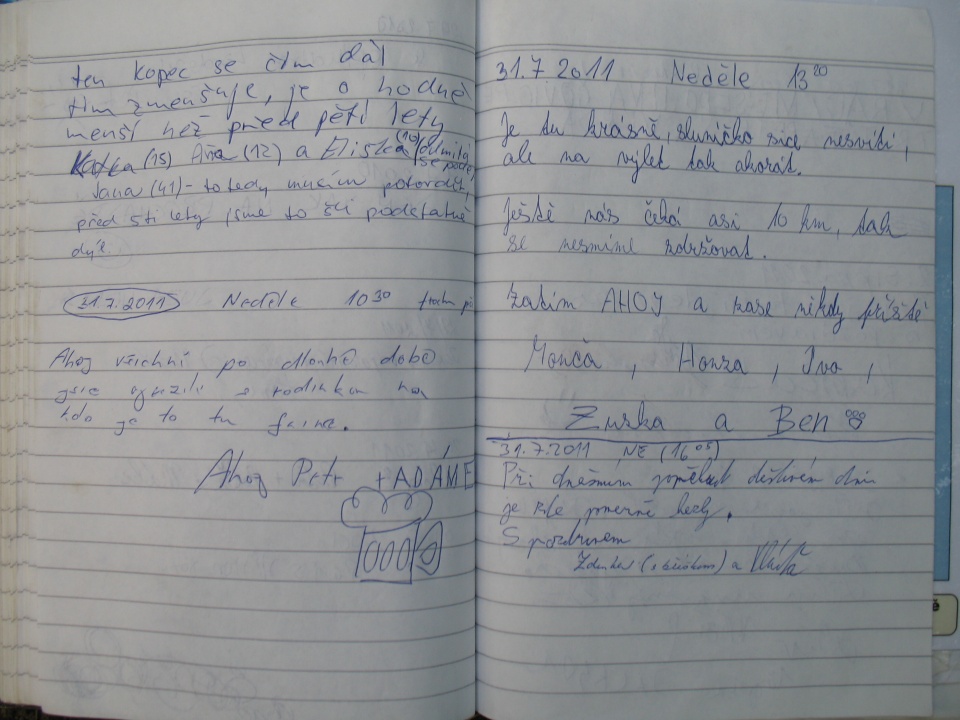 ten kopec se čím dál
tím zmenšuje, je o hodně
menší než před pěti lety
Katka (15) Áňa (12) a Eliška (10)
Jana (41) - to tedy musím potvrdit,
před 5ti lety jsme to šli podstatně
dýl.
31.7.2011 Neděle 10 30
Ahoj všichni po dlouhé době
jsme s rodinkou
je to tu fajné.
Ahoj Petr + ADÁM
31.7 2011 Neděle 13 20
Je tu krásně, sluníčko sice nesvítí,
ale na výlet tak akorát.
Ještě nás čeká asi 10 km, tak
se nesmíme zdržovat.
Zatím AHOJ a zase někdy příště
Monča, Honza, Ivo,
Zuzka a Ben
31.7.2011 NE (16 05)
Při dnešním deštivém dni
je zde
S pozdravem
a